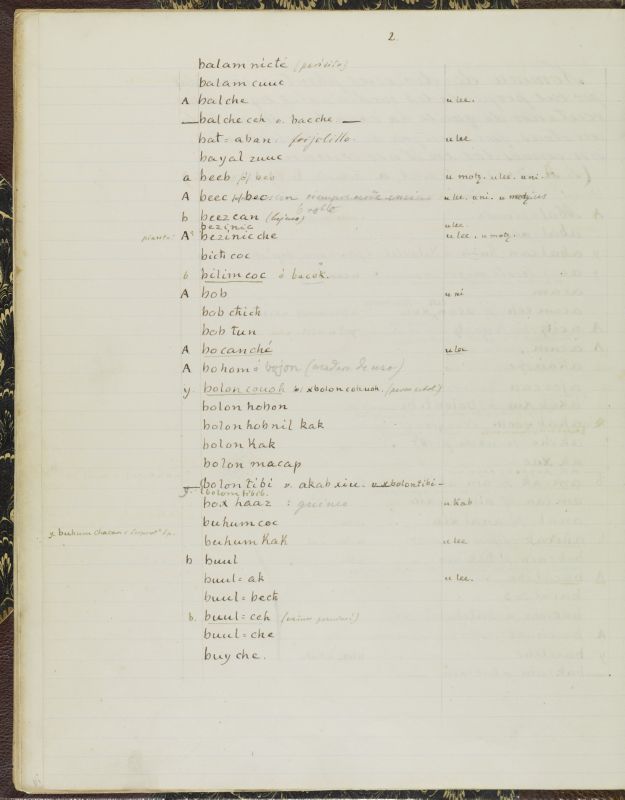 2.
balam nicté
balam cuuc
A balche u lee.
balche ceh v. bacche
bat=aban frijolillo u lee
bayal zuuc
a beeb beb u motz. u lee. u ni.
A beec bec u lee. u ni. u motz
b beezcan (bejuco)
bezinic u lee.
A bezinic che u lee. u motz.
bich coc
b bilim coc ó bacok.
A bob u ni
bob chich
bob tun
A bocanché u lee
A bohom ó bojon (madera de uso)
y bolon couoh xbolon cohuoh.
bolon hobon
bolon hobnil kak
bolon Kak
bolon macap
y bolon tibi v. akabxiu. v. xbolontibi
box haaz : guineo u Kab
buhum coc
y buhum chacan
buhum Kak u lee
b buul
buul=ak u lee.
buul=bech
b. buul=ceh
buul=che
buy che.